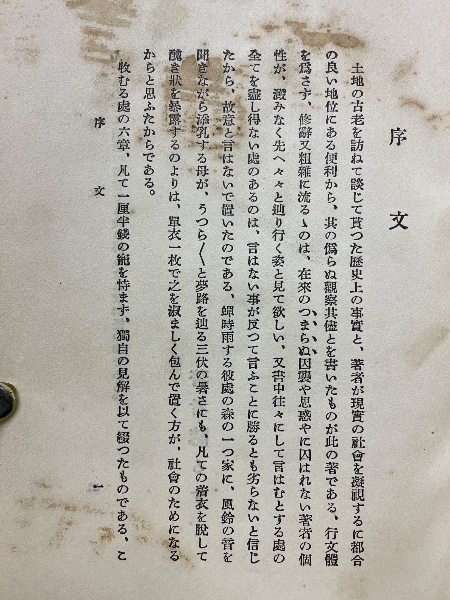 序文
土地の古老を訪ねて談じて貰つた歴史上の事實と、著者が現實の社會を凝視するに都合
の良い地位にある便利から、其の僞らぬ觀察其儘とを書いたものが此の著である、行文體
を爲さず、修辭又粗雜に流るゝのは、在來のつまらぬ因襲や思惑やに囚はれない著者の個
性が、澱みなく先へ々々と辿り行く姿と見て欲しい、又書中往々にして言はむとする處の
全てを盡し得ない處のあるのは、言はない事が反つて言ふことに勝るとも劣らないと信じ
たから、故意と言はないで置いたのである、蟬時雨する彼處の森の一つ家に、風鈴の音を
聞きながら添乳する母が、うつら〳〵と夢路を辿る三伏の暑さにも、凡ての着衣を脫して
醜き狀を暴露するのよりは、單衣一枚で之を淑ましく包んで置く方が、社會のためになる
からと思ふたからである。
收むる處の六章、凡て一厘半錢の範を恃まず、獨自の見解を以て綴つたものである、こ
序文
一